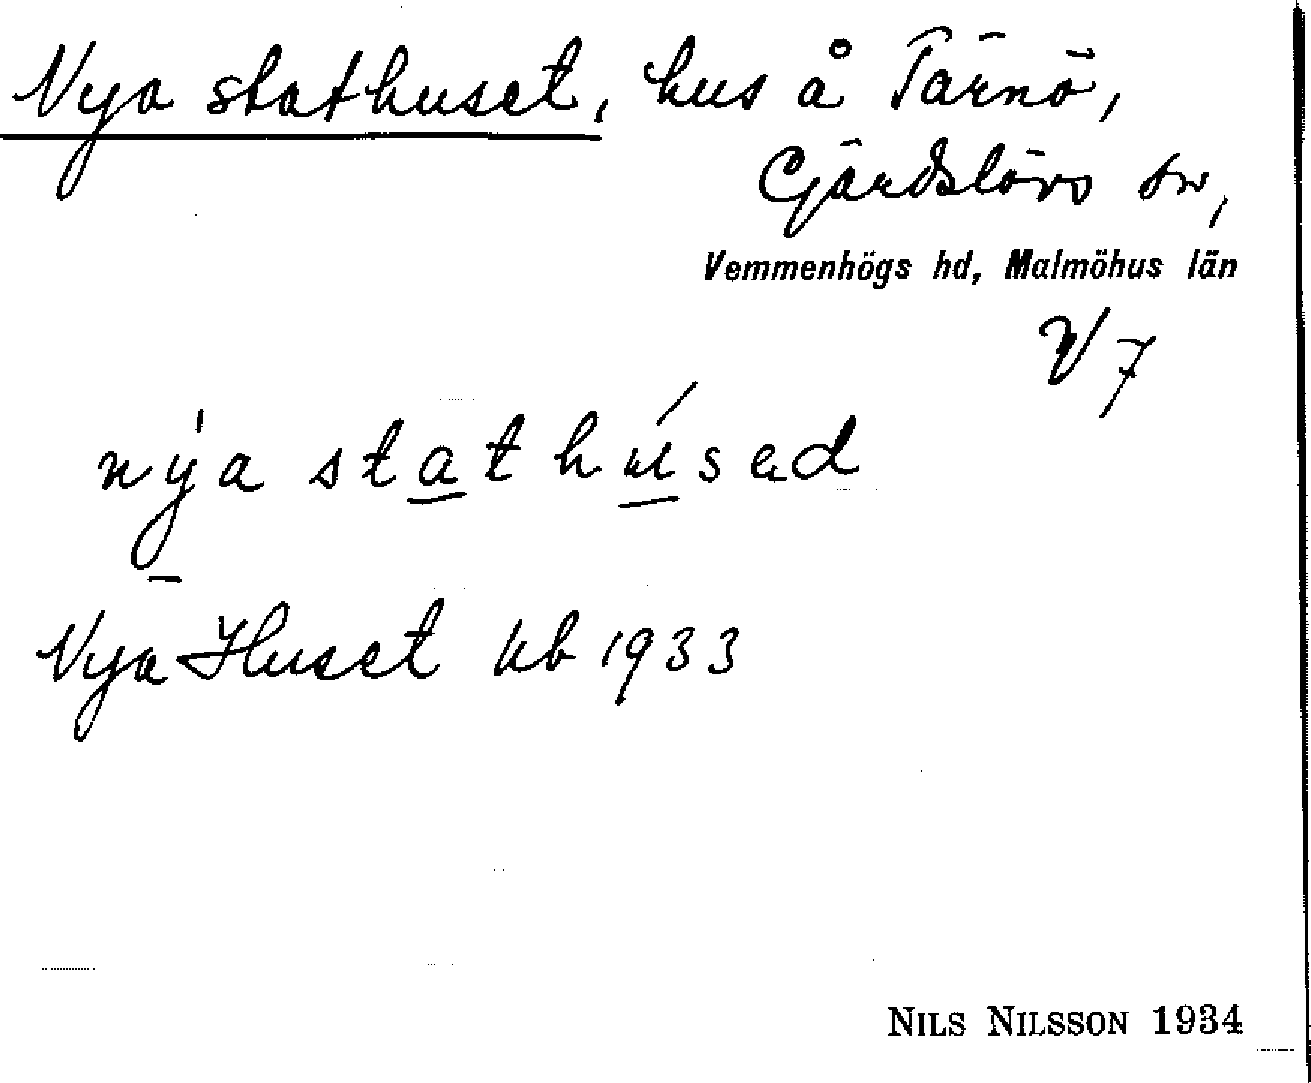 Nya stathuset, hus å Tärnö,
Gärdslövs sn,
Vemmenhögs hd, Malmöhus län
V 7
nýa stathúsad
Nya Huset kb 1933
NILS NILSSON 1934